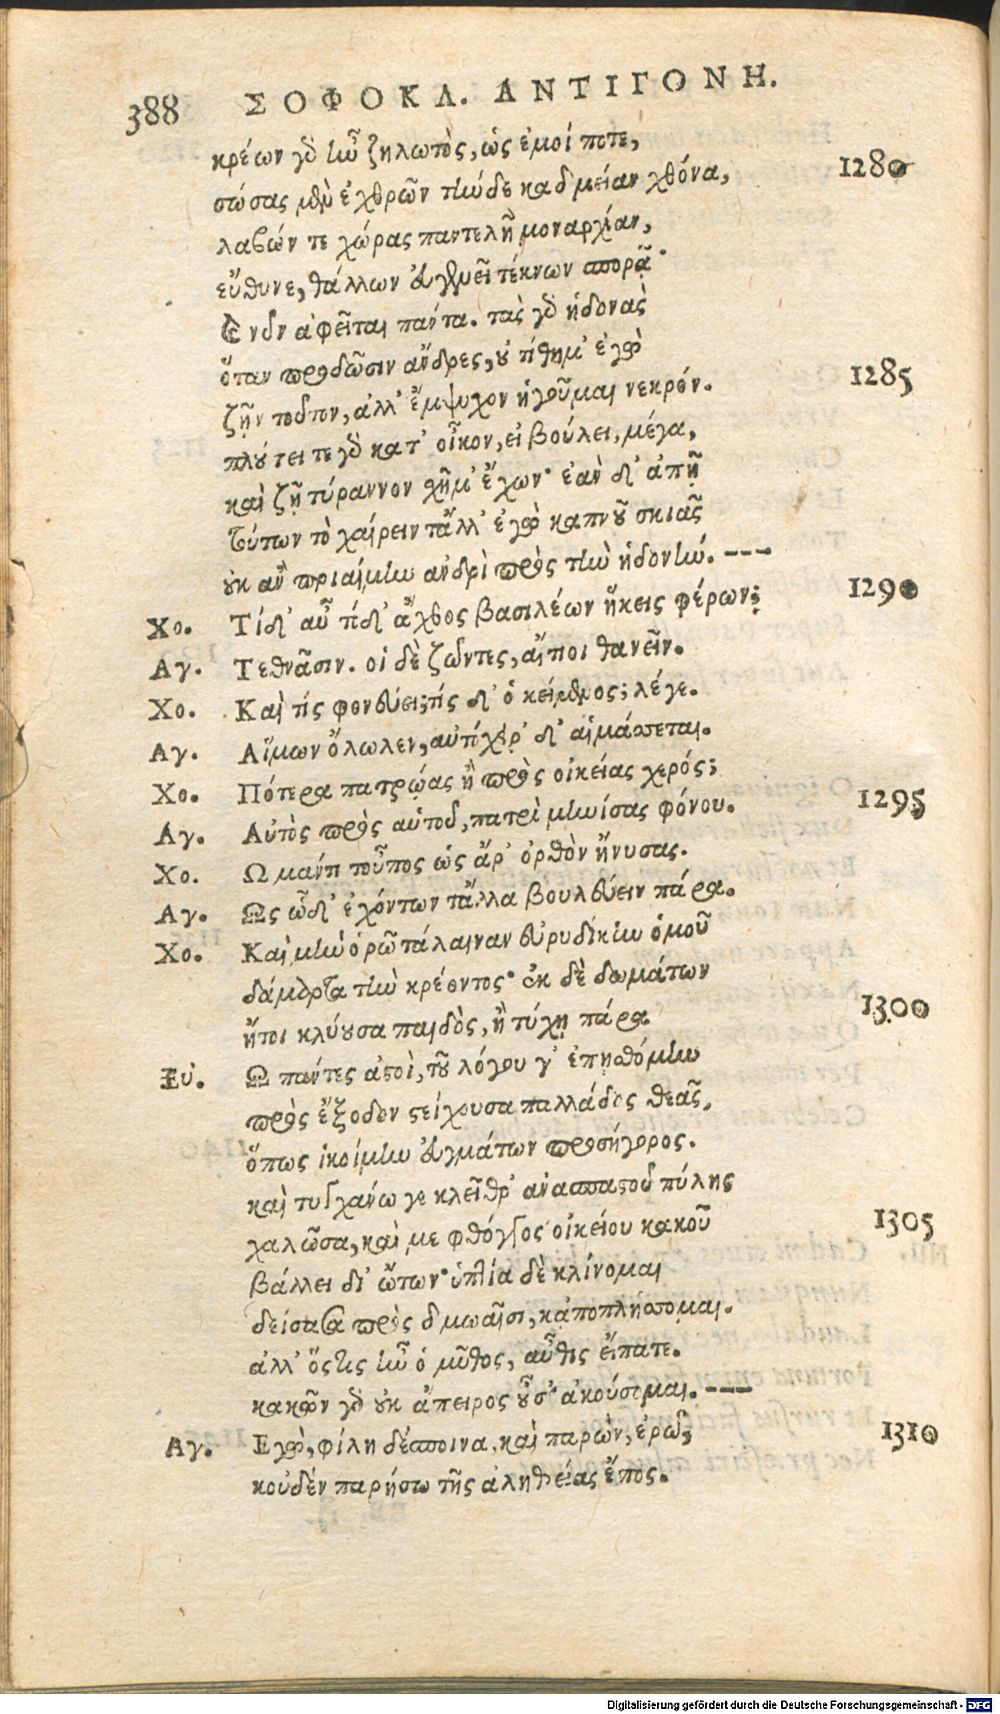 388 ΣΟΦΟΚΛ. ΑΝΤΙΓΟΝΗ.
κρέων γδ ἰῶ ζηλωτὸς, ὡς ἐμοί ποτε,
σώσας μὲν ἐχθρῶν τἰώδε καδμείαν χθόνα, 1280
λαβών τε χώρας παντελῆ μοναρχίαν,
εὔθυνε, θάλλων εὐγενεῖ τέκνων σπορᾷ·
Καὶ νῦν ἀφεῖται πάντα. τὰς γδ ἡδονὰς
ὅταν προδῶσιν ἄνδρες, οὐ τίθημ' ἐγὼ
ζῇν τοῦτον, ἀλλ' ἔμψυχον ἡγοῦμαι νεκρόν. 1285
πλούτει τε γδ κατ' οἶκον, εἰ βούλει, μέγα,
καὶ ζῇ τύραννον χῆμ' ἔχων· ἐὰν δ' ἀπῇ
τούτων τὸ χαίρειν τἄλλ' ἐγὼ καπνοῦ σκιᾶς
οὐκ ἂν πριαίμἰω ἀνδρὶ πρὸς τἰὼ ἡδονἰώ. ---
Χο. Τί δ' αὖ τόδ' ἄχθος βασιλέων ἥκεις φέρων; 1290
Αγ. Τεθνᾶσιν. οἱ δὲ ζῶντες, αἴτιοι θανεῖν.
Χο. Καὶ τίς φονεύει; τίς δ' ὁ κείμενος; λέγε.
Αγ. Αἵμων ὄλωλεν, αὐτόχειρ δ' αἱμάσσεται.
Χο. Πότερα πατρῴας ἢ πρὸς οἰκείας χερός;
Αγ. Αὐτὸς πρὸς αὑτοῦ, πατρὶ μἰωίσας φόνου. 1295
Χο. Ω μάντι τοὖπος ὡς ἄρ' ὀρθὸν ἤνυσας.
Αγ. Ως ὧδ' ἐχόντων τἄλλα βουλεύειν πάρα.
Χο. Καὶ μἰὼ ὁρῶ τάλαιναν εὐρυδίκἰω ὁμοῦ
δάμαρτα τἰὼ κρέοντος· ἐκ δὲ δωμάτων
ἤτοι κλύουσα παιδὸς, ἢ τύχῃ πάρα 1300
Ευ. Ω πάντες ἀστοὶ, τοῦ λόγου γ' ἐπῃσθόμἰω
πρὸς ἔξοδον στείχουσα παλλάδος θεᾶς,
ὅπως ἱκοίμἰω εὐγμάτων προσήγορος.
καὶ τυγχάνω γε κλεῖθρ' ἀνασπαστοῦ πύλης
χαλῶσα, καὶ με φθόγγος οἰκείου κακοῦ 1305
βάλλει δι' ὤτων· ὑπτία δὲ κλίνομαι
δείσασα πρὸς δμωαῖσι, κἀποπλήσσομαι.
ἀλλ' ὅστις ἰῶ ὁ μῦθος, αὖθις εἴπατε.
κακῶν γδ οὐκ ἄπειρος οὖσ' ἀκούσομαι. ---
Αγ. Εγὼ, φίλη δέσποινα, καὶ παρὼν, ἐρῶ, 1310
κοὐδὲν παρήσω τῆς ἀληθείας ἔπος.
Digitalisierung gefördert durch die Deutsche Forschungsgemeinschaft - DFG